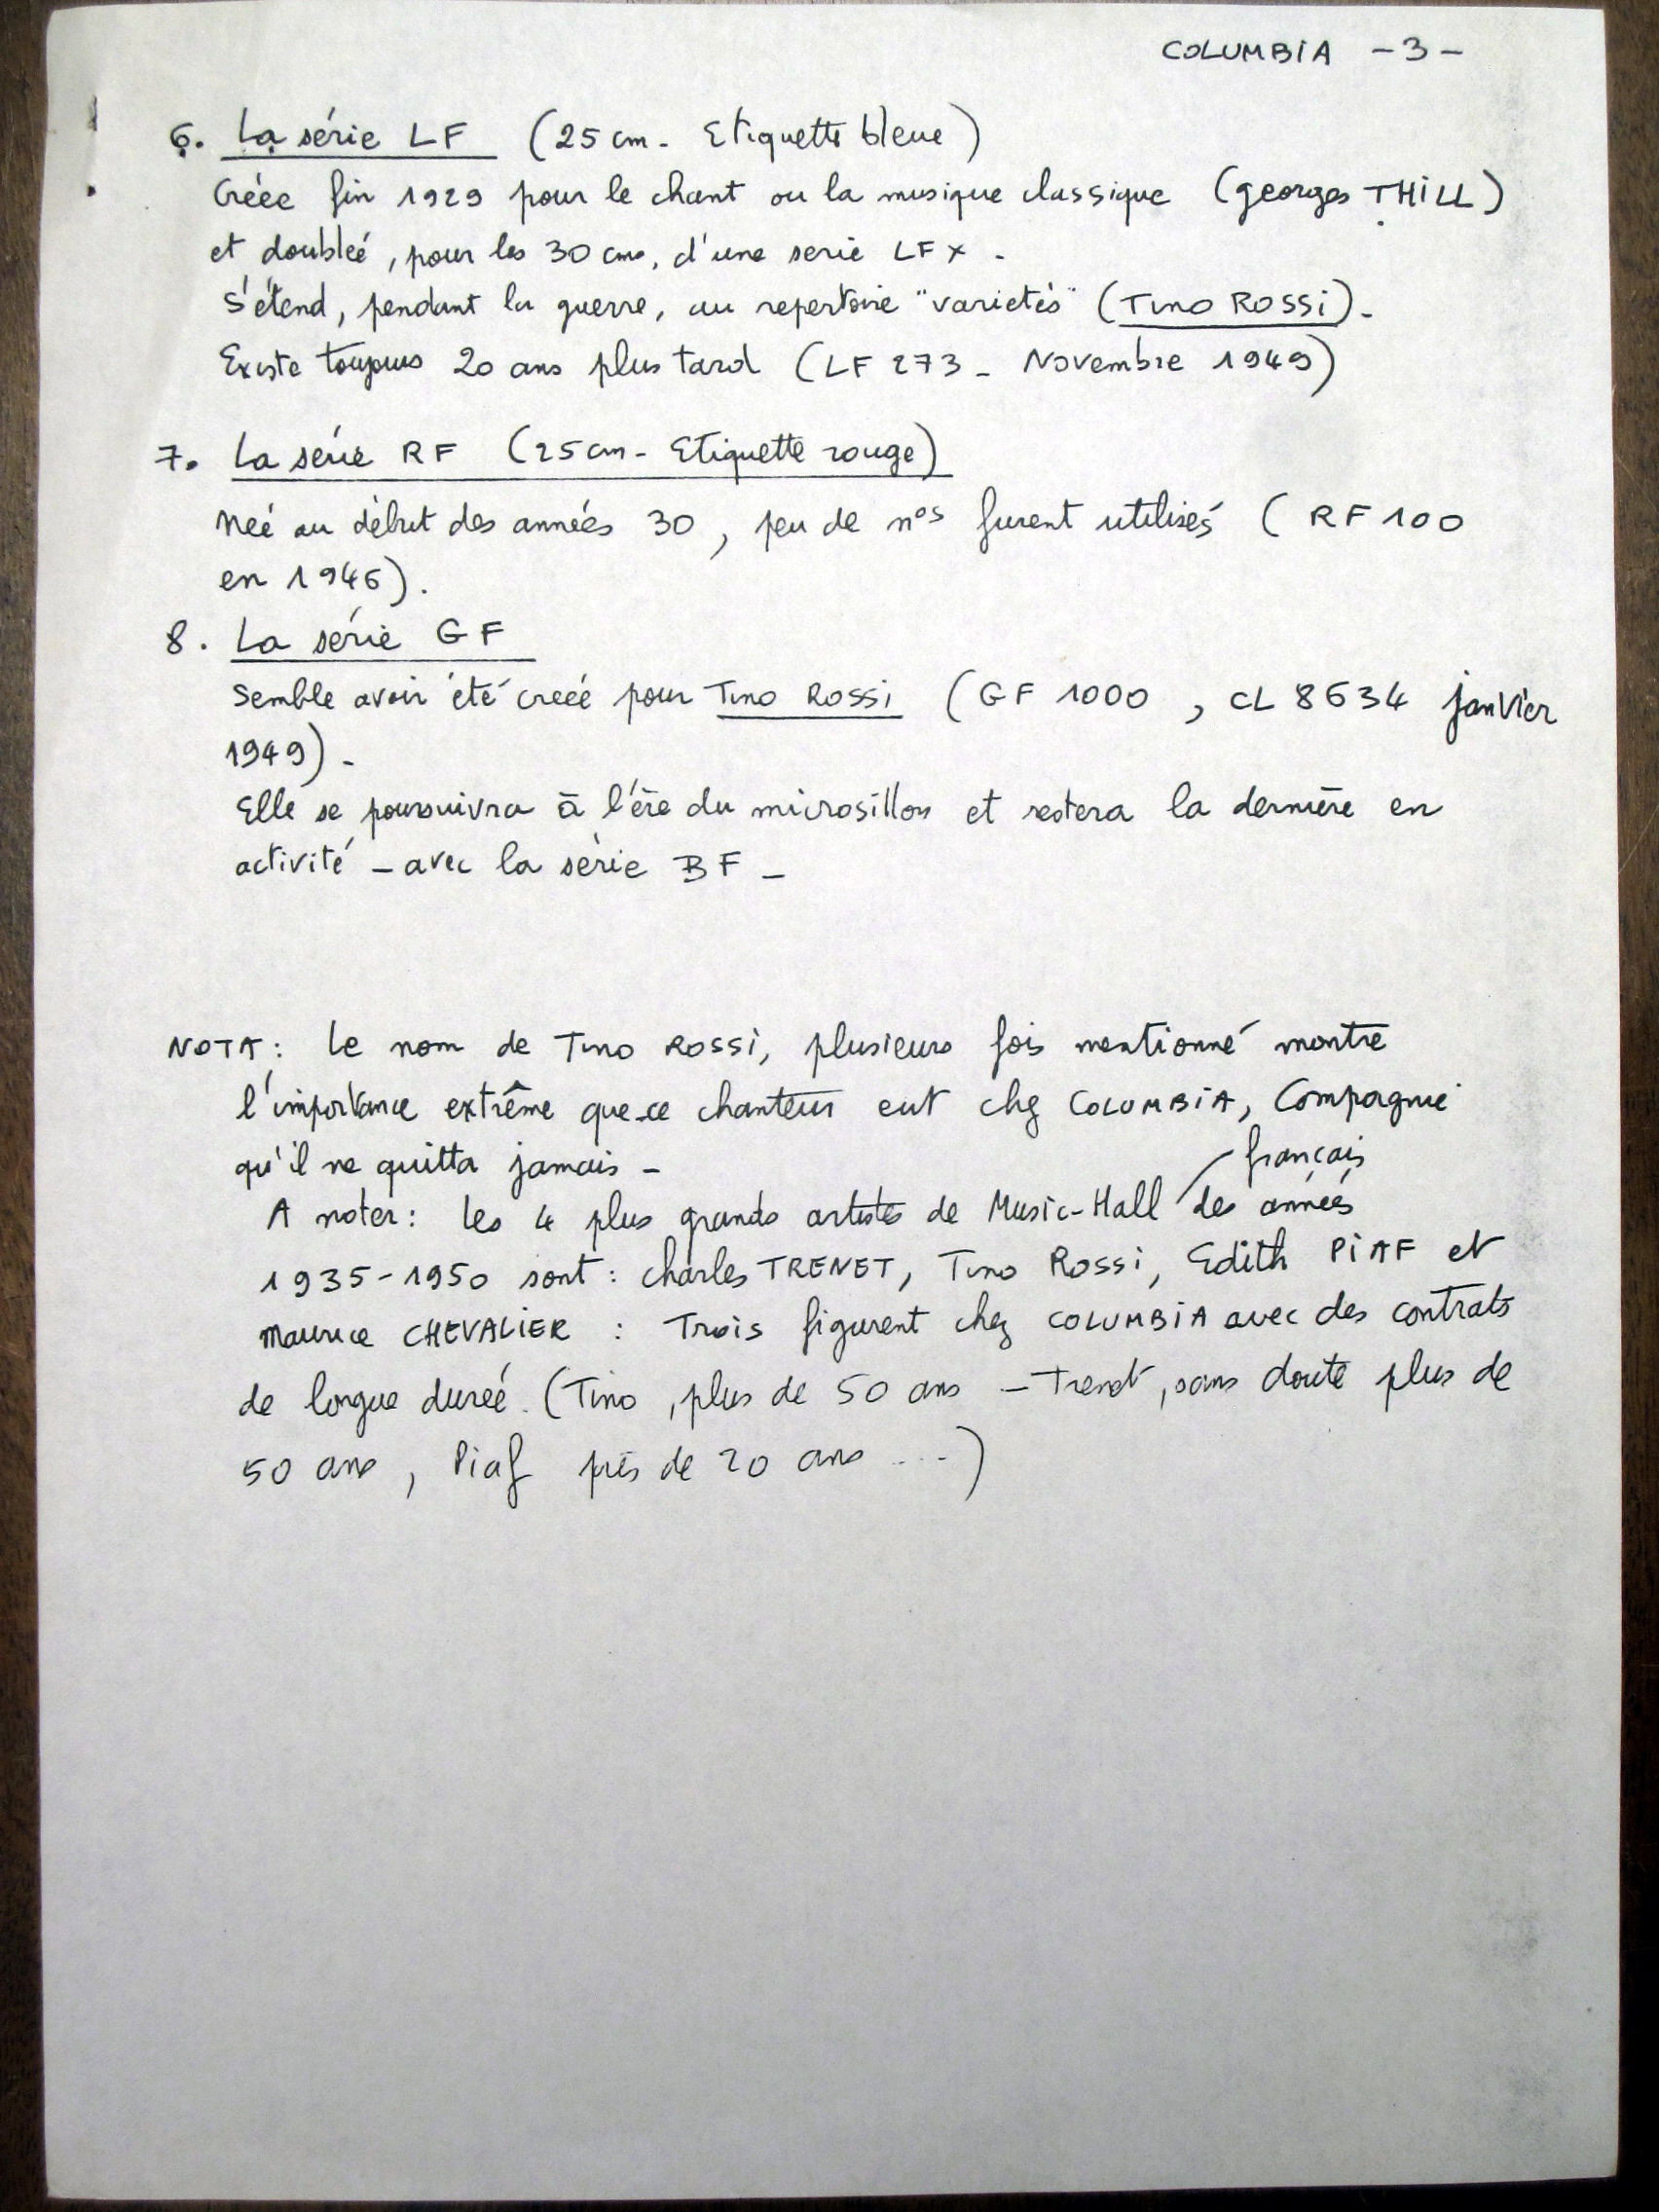 COLUMBIA - 3 -
6. La série LF (25 cm - Etiquette bleue)
Créée fin 1929 pour le chant ou la musique classique (Georges THILL)
et doubleé, pour les 30 cms, d'une serie LFX -
S'étend, pendant la guerre, au repertoire "varietés" (Tino ROSSi) -
Existe toujours 20 ans plus tard (LF 273 - Novembre 1949)
7. La série RF (25 cm - Etiquette rouge)
Neé au début des années 30, peu de nos furent utilisés (RF 100
en 1946).
8. La série GF
Semble avoir été creéé pour Tino ROSSi (GF 1000, CL 8634 janvier
1949) -
Elle se poursuivra à l'ère du microsillon et restera la dernière en
activité - avec la série BF -
NOTA: Le nom de Tino ROSSi, plusieurs fois mentionné montre
l'importance extrême que ce chanteur eut chez COLUMBiA, Compagnie
qu'il ne quitta jamais -
français
A noter: les 4 plus grands artistes de Music-Hall des années
1935-1950 sont: Charles TRENET, Tino Rossi, Edith PiAF et
Maurice CHEVALIER : Trois figurent chez COLUMBiA avec des contrats
de longue dureé. (Tino, plus de 50 ans - Trenet, sans doute plus de
50 ans, Piaf près de 20 ans ...)